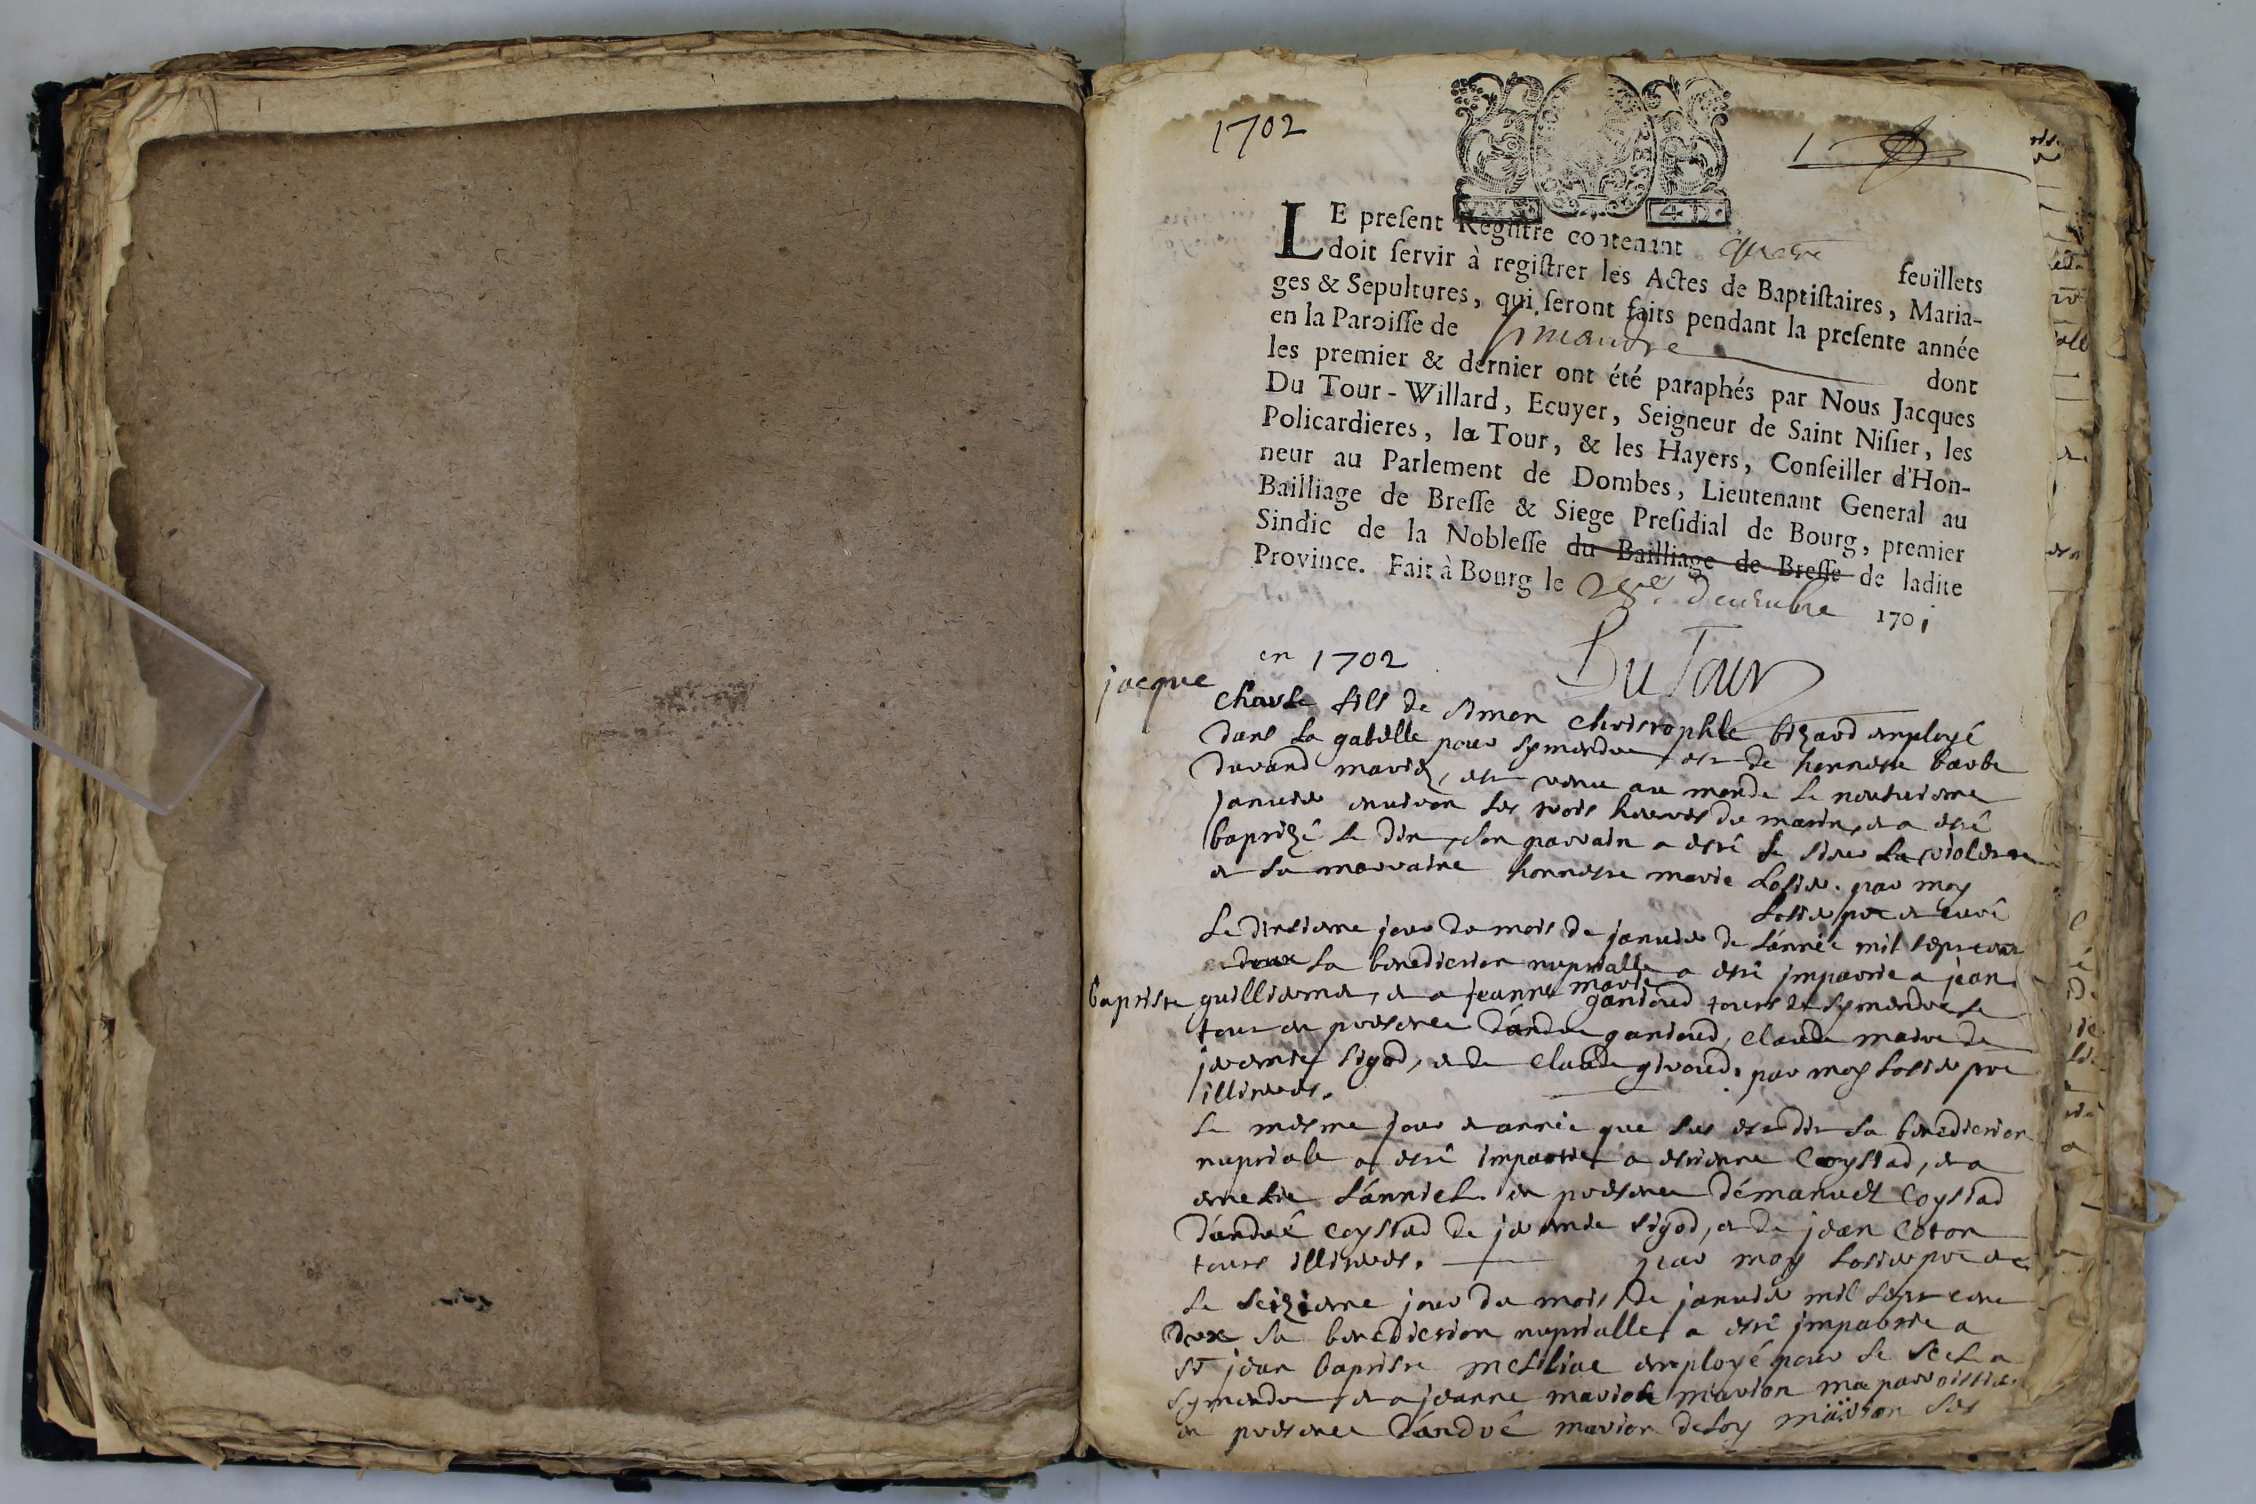 1702
1
VN S. 4 D.
LE preſent Regiſtre contenant quatre feuïllets
doit ſervir à regiſtrer les Actes de Baptiſtaires, Maria-
ges & Sepultures, qui ſeront faits pendant la preſente année
en la Paroiſſe de Simandre dont
les premier & dernier ont été paraphés par Nous Jacques
Du Tour-Willard, Ecuyer, Seigneur de Saint Niſier, les
Policardieres, la Tour, & les Hayers, Conſeiller d'Hon-
neur au Parlement de Dombes, Lieutenant General au
Bailliage de Breſſe & Siege Preſidial de Bourg, premier
Sindic de la Nobleſſe du Bailliage de Breſſe de ladite
Province. Fait à Bourg le decembre 1701
Du Tour
en 1702
jacque
charle fils de simon christophle employé
dans la gabelle pour symendre et de honneste barbe
durand mariez, est venu au monde le neufvieme
janvier environ les trois heures du matin, et a esté
baptizé le dix, son parrain a esté le sieur la violette
et sa marraine honneste marie losier. par moy
losier ptre et curé
le dixieme jour du mois de janvier de l'année mil sept cent
deux la benediction nuptialle a esté impartie a jean
baptiste guillierme, et a jeanne marie gantoud touts de symendre le
tout en presence d'andre gantoud, claude maire de
jeremie sigod, et de claude giroud. par moy losier ptre
illiterés.
le mesme jour et année que sus est dit la benediction
nuptiale a esté impartie a estienne Coystad, et a
l'anniel. en presence d'émanuel Coystad
d'andré coystad de jeremie sigod, et de jean Coton
touts illiterés. par moy losier ptre et c.
le seizieme jour du mois de janvier mil sept cent
deux la benediction nuptialle a esté impartie a
sr jean baptiste employé pour le sel a
symendre et a jeanne marion ma paroissie.
en presence d'andré marion deloy marion ses